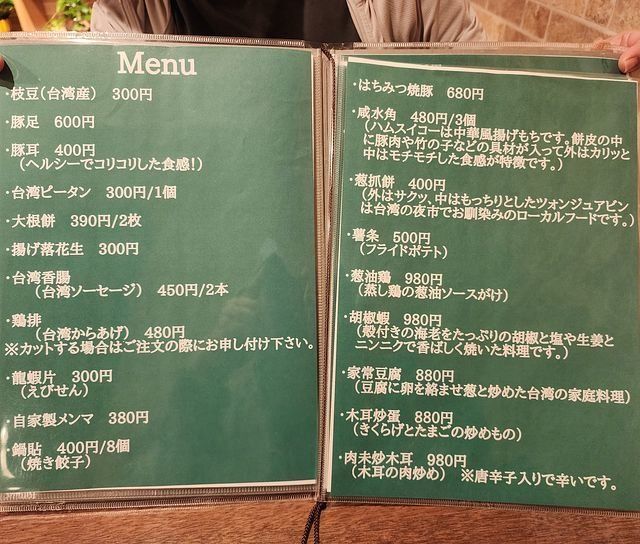 Menu
・枝豆（台湾産） 300円
・豚足 600円
・豚耳 400円
（ヘルシーでコリコリした食感！）
・台湾ピータン 300円/1個
・大根餅 390円/2枚
・揚げ落花生 300円
・台湾香腸
（台湾ソーセージ） 450円/2本
・鶏排
（台湾からあげ） 480円
※カットする場合はご注文の際にお申し付け下さい。
・龍蝦片 300円
（えびせん）
・自家製メンマ 380円
・鍋貼 400円/8個
（焼き餃子）
・はちみつ焼豚 680円
・咸水角 480円/3個
（ハムスイコーは中華風揚げもちです。餅皮の中
に豚肉や竹の子などの具材が入って外はカリッと
中はモチモチした食感が特徴です。）
・葱抓餅 400円
（外はサクッ、中はもっちりとしたツォンジュアピン
は台湾の夜市でお馴染みのローカルフードです。）
・薯条 500円
（フライドポテト）
・葱油鶏 980円
（蒸し鶏の葱油ソースがけ）
・胡椒蝦 980円
（殻付きの海老をたっぷりの胡椒と塩や生姜と
ニンニクで香ばしく焼いた料理です。）
・家常豆腐 880円
（豆腐に卵を絡ませ葱と炒めた台湾の家庭料理）
・木耳炒蛋 880円
（きくらげとたまごの炒めもの）
・肉未炒木耳 980円
（木耳の肉炒め） ※唐辛子入りで辛いです。